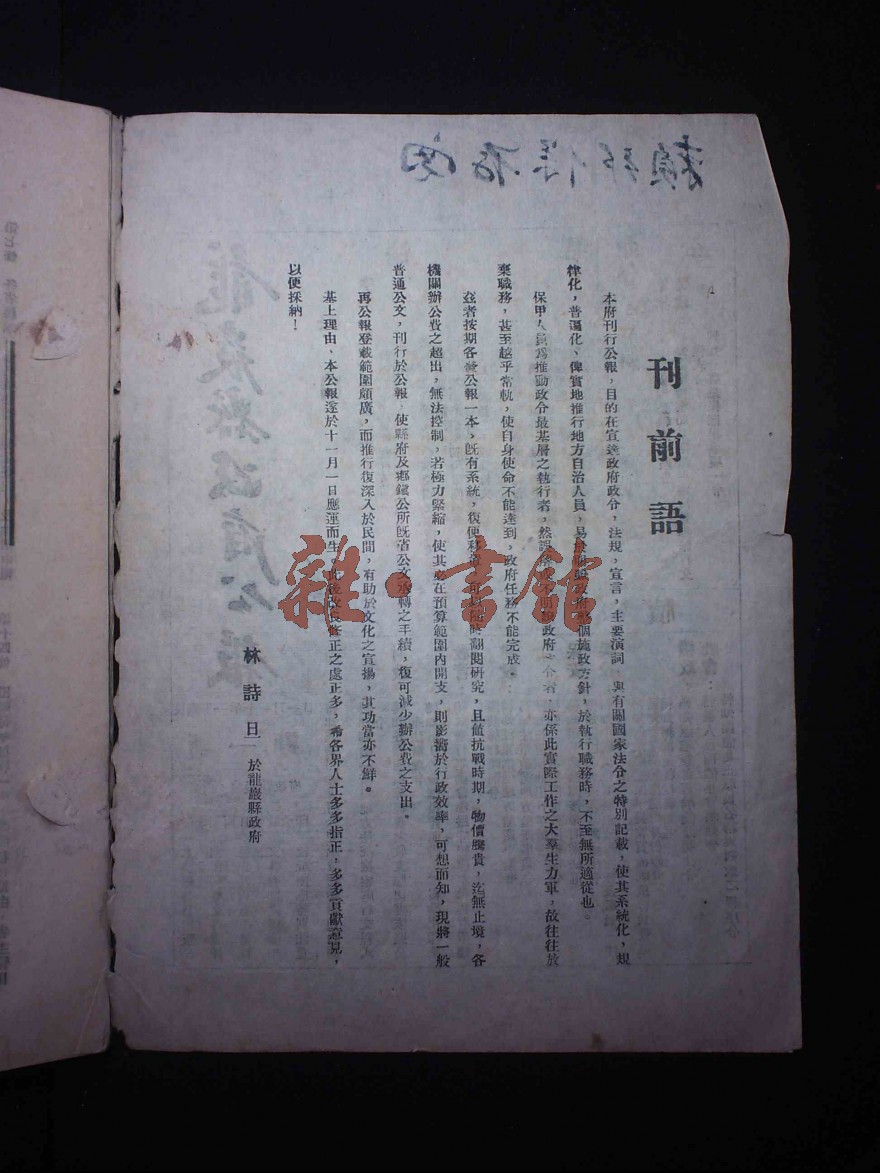 刊前語
本府刊行公報，目的在宣達政府政令，法規，宣言，主要演詞，與有關國家法令之特別記載，使其系統化，規
律化，普遍化、俾實地推行地方自治人員，易於明瞭政府整個施政方針，於執行職務時，不至無所適從也。
保甲人員爲推動政令最基層之執行者，然誤解或不明瞭政府令者，亦係此實際工作之大羣生力軍，故往往放
棄職務，甚至越乎常軌，使自身使命不能達到，政府任務不能完成。
茲者按期各發公報一本，旣有系統，復便移，可以隨時翻閱研究，且值抗戰時期，物價騰貴，迄無止境，各
機關辦公費之超出，無法控制，若極力緊縮，使其必在預算範圍內開支，則影響於行政效率，可想而知，現將一般
普通公文，刊行於公報，使縣府及鄉鎮公所旣省公文承轉之手續，復可減少辦公費之支出。
再公報登載範圍頗廣，而推行復深入於民間，有助於文化之宣揚，其功當亦不鮮。
基上理由、本公報遂於十一月一日應運而生。此後改良修正之處正多，希各界人士多多指正，多多貢獻意見，
以便採納！
林詩旦 於龍巖縣政府
雜·書館
龍巖縣政府公報